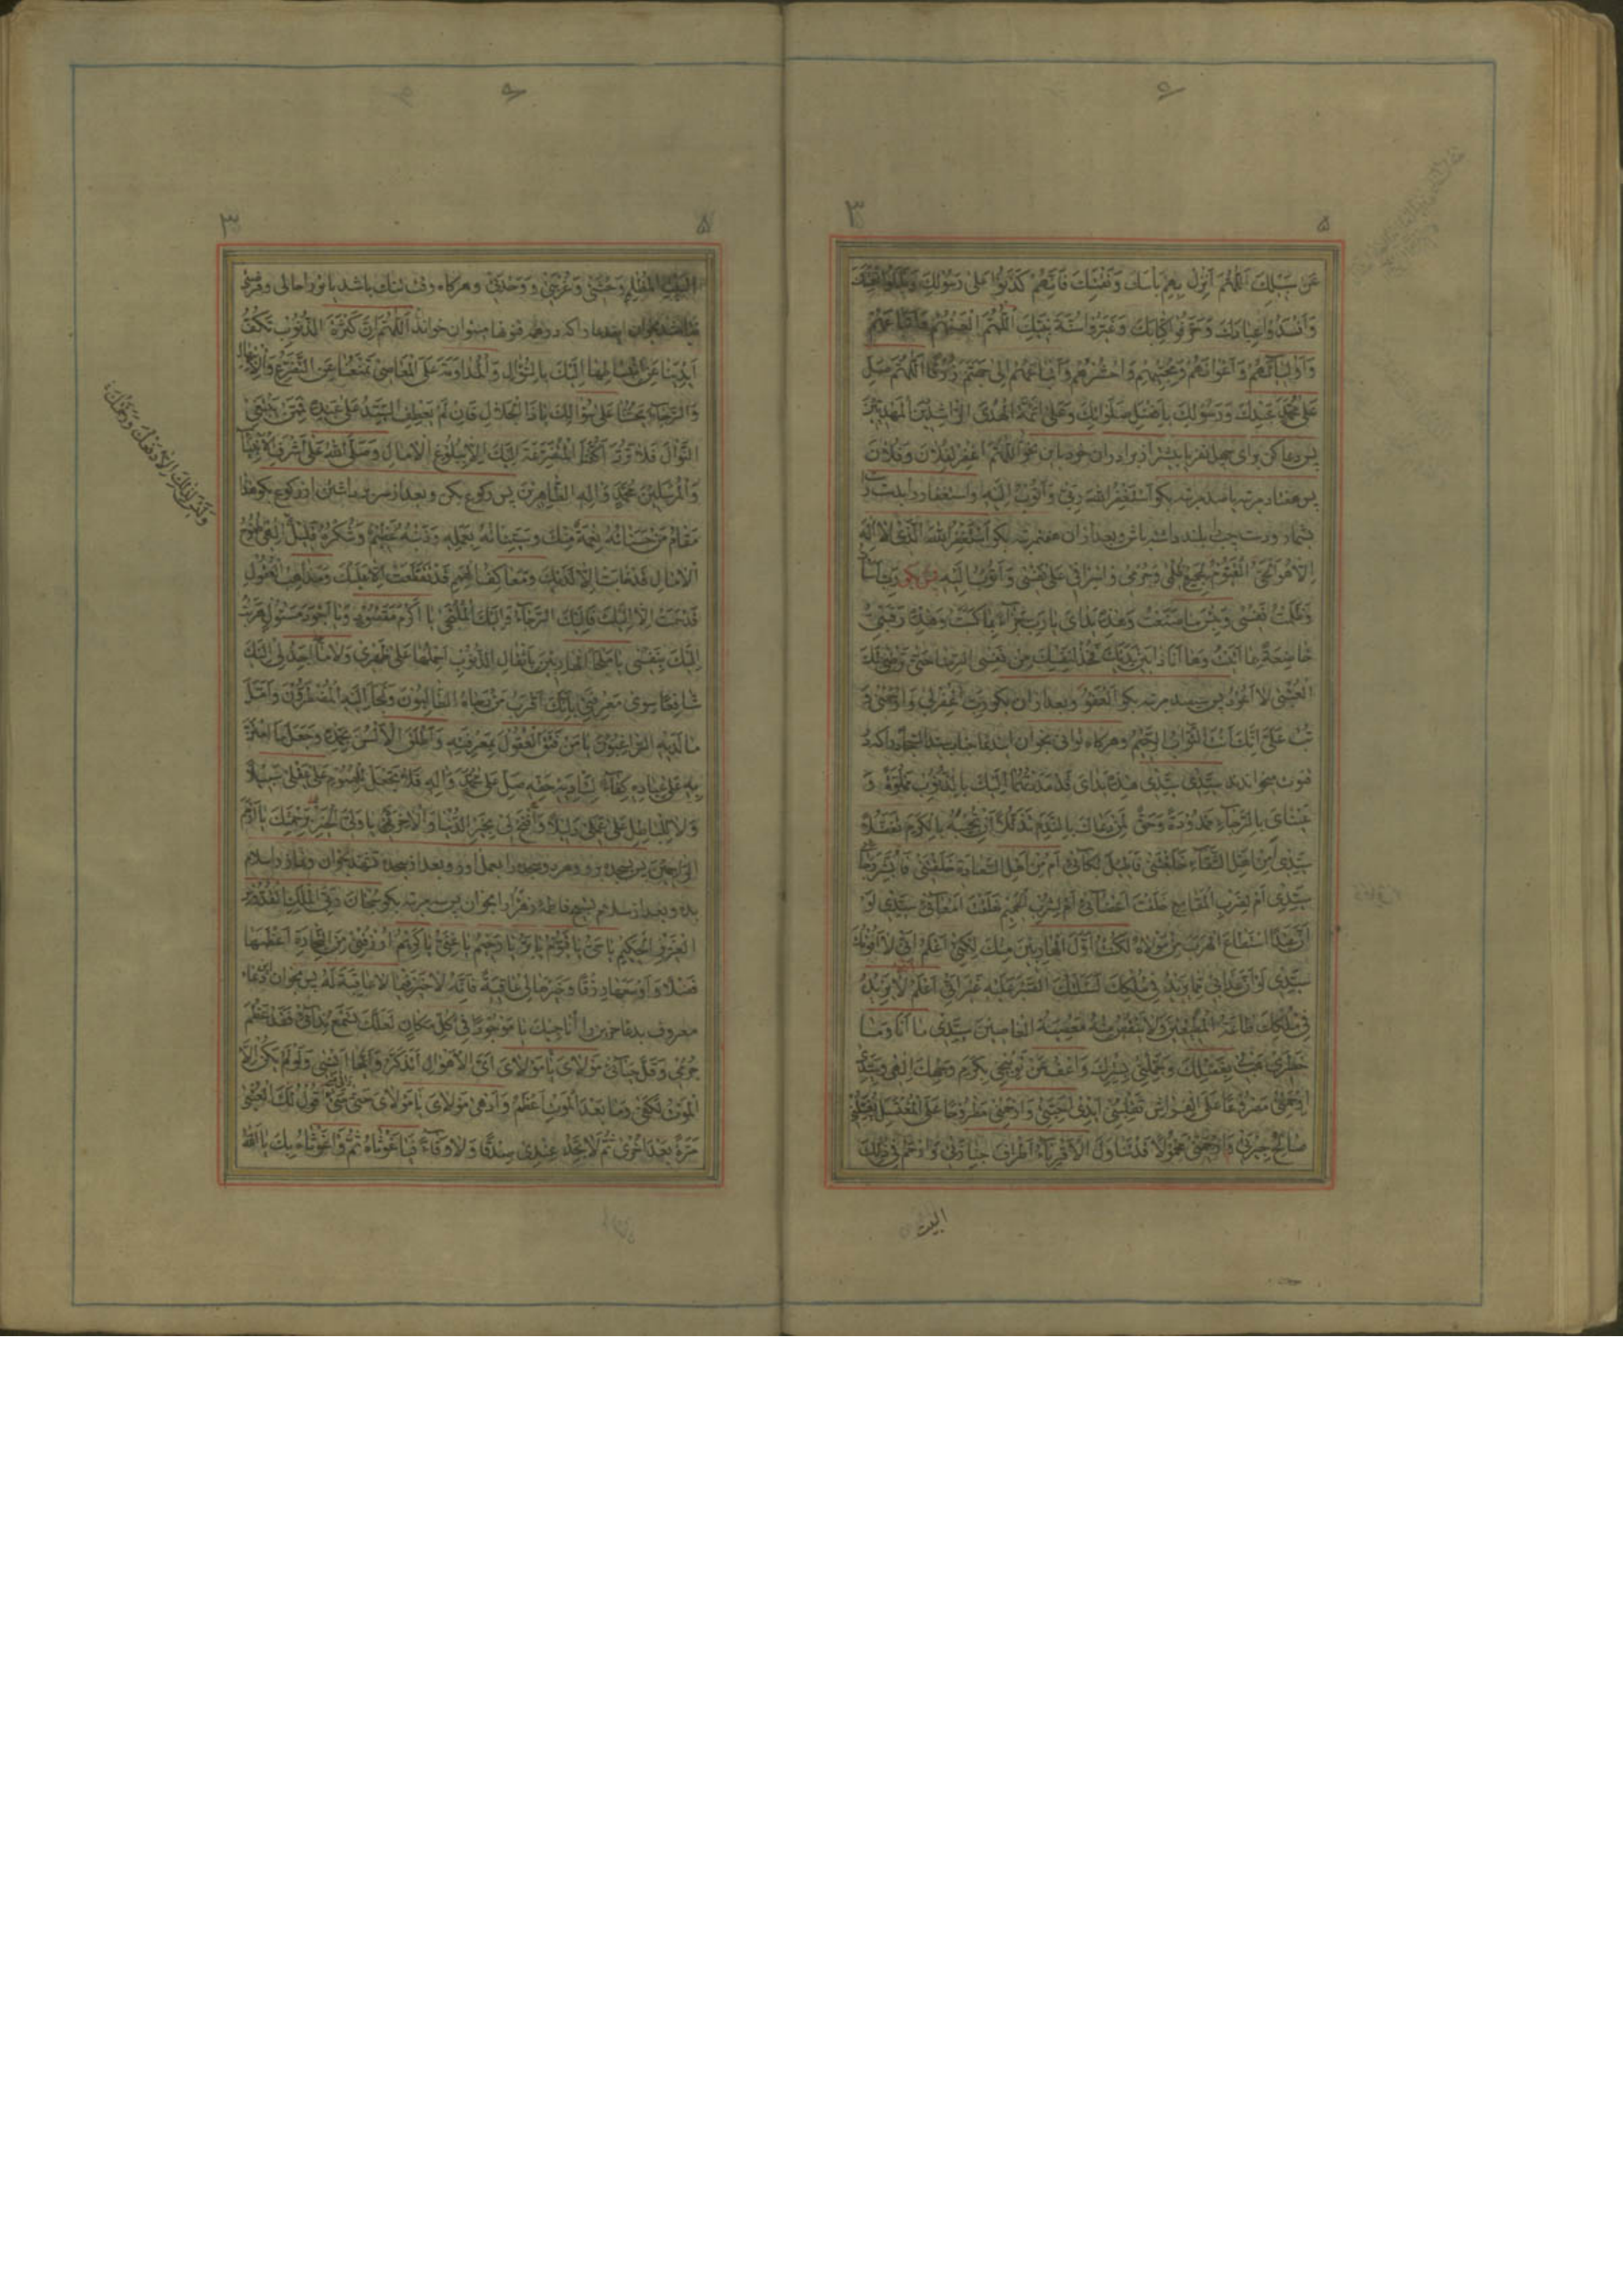 ۳
۵
عَنْ سَبِيلِكَ اَللّٰهُمَّ اَنْزِلْ بِهِمْ بَأْسَكَ وَنَقِمَتَكَ فَاِنَّهُمْ كَذَّبُوا عَلٰى رَسُولِكَ وَبَدَّلُوا نِعْمَتَكَ
وَاَفْسَدُوا عِبَادَكَ وَحَرَّفُوا كِتَابَكَ وَغَيَّرُوا سُنَّةَ نَبِيِّكَ اَللّٰهُمَّ الْعَنْهُمْ وَاَتْبَاعَهُمْ
وَاَوْلِيَائَهُمْ وَاَعْوَانَهُمْ وَمُحِبِّيهِمْ وَاحْشُرْهُمْ وَاَتْبَاعَهُمْ اِلٰى جَهَنَّمَ زُرْقًا اَللّٰهُمَّ صَلِّ
عَلٰى مُحَمَّدٍ عَبْدِكَ وَرَسُولِكَ بِاَفْضَلِ صَلَوَاتِكَ وَعَلٰى اَئِمَّةِ الْهُدَى الرَّاشِدِينَ الْمَهْدِيِّينَ
پس دعا كن براى چهل نفر يا بيشتر از برادران خود باين نحو اَللّٰهُمَّ اغْفِرْ لِفُلَانٍ وَفُلَانٍ
پس هفتاد مرتبه يا صد مرتبه بكو اَسْتَغْفِرُ اللّٰهَ رَبِّى وَاَتُوبُ اِلَيْهِ واستغفار را بدست
بشمار ودست چپ بلند داشته باش وبعد از ان هفت مرتبه بكو اَسْتَغْفِرُ اللّٰهَ الَّذِى لَا اِلٰهَ
اِلَّا هُوَ الْحَىُّ الْقَيُّومُ لِجَمِيعِ ظُلْمِى وَجُرْمِى وَاِسْرَافِى عَلٰى نَفْسِى وَاَتُوبُ اِلَيْهِ پس بكو رَبِّ اَسَأْتُ
وَظَلَمْتُ نَفْسِى وَبِئْسَ مَا صَنَعْتُ وَهٰذِهِ يَدَاىَ يَا رَبِّ جَزَاءً بِمَا كَسَبَتْ وَهٰذِهِ رَقَبَتِى
خَاضِعَةٌ لِمَا اَتَيْتُ وَهَا اَنَا ذَا بَيْنَ يَدَيْكَ فَخُذْ لِنَفْسِكَ مِنْ نَفْسِىَ الرِّضَا حَتّٰى تَرْضٰى لَكَ
الْعُتْبٰى لَا اَعُودُ پس سيصد مرتبه بكو اَلْعَفْوَ وبعد از ان بكو رَبِّ اغْفِرْ لِى وَارْحَمْنِى وَ
تُبْ عَلَىَّ اِنَّكَ اَنْتَ التَّوَّابُ الرَّحِيمُ وهركاه توانى بخوان
سَيِّدِى سَيِّدِى هٰذِهِ يَدَاىَ قَدْ مَدَدْتُهُمَا اِلَيْكَ بِالذُّنُوبِ مَمْلُوَّةً وَ
عَيْنَاىَ بِالرَّجَاءِ مَمْدُودَةً وَحَقٌّ لِمَنْ دَعَاكَ بِالنَّدَمِ تَذَلُّلًا اَنْ تُجِيبَهُ بِالْكَرَمِ تَفَضُّلًا
سَيِّدِى اَمِنْ اَهْلِ الشَّقَاءِ خَلَقْتَنِى فَاُطِيلَ بُكَائِى اَمْ مِنْ اَهْلِ السَّعَادَةِ خَلَقْتَنِى فَاُبَشِّرَ رَجَائِى
سَيِّدِى اَلِضَرْبِ الْمَقَامِعِ خَلَقْتَ اَعْضَائِى اَمْ لِشُرْبِ الْحَمِيمِ خَلَقْتَ اَمْعَائِى سَيِّدِى لَوْ
اَنَّ عَبْدًا اسْتَطَاعَ الْهَرَبَ مِنْ مَوْلَاهُ لَكُنْتُ اَوَّلَ الْهَارِبِينَ مِنْكَ لٰكِنِّى اَعْلَمُ اَنِّى لَا اَفُوتُكَ
سَيِّدِى لَوْ اَنَّ عَذَابِى مِمَّا يَزِيدُ فِى مُلْكِكَ لَسَئَلْتُكَ الصَّبْرَ عَلَيْهِ غَيْرَ اَنِّى اَعْلَمُ لَا يَزِيدُ
فِى مُلْكِكَ طَاعَةُ الْمُطِيعِينَ وَلَا يَنْقُصُ مِنْهُ مَعْصِيَةُ الْعَاصِينَ سَيِّدِى مَا اَنَا وَمَا
خَطَرِى هَبْ لِى بِفَضْلِكَ وَجَلِّلْنِى بِسِتْرِكَ وَاعْفُ عَنْ تَوْبِيخِى بِكَرَمِ وَجْهِكَ اِلٰهِى وَسَيِّدِى
اِرْحَمْنِى مَصْرُوعًا عَلَى الْفِرَاشِ تُقَلِّبُنِى اَيْدِى اَحِبَّتِى وَارْحَمْنِى مَطْرُوحًا عَلَى الْمُغْتَسَلِ يُغَسِّلُنِى
صَالِحُ جِيرَتِى وَارْحَمْنِى مَحْمُولًا قَدْ تَنَاوَلَ الْاَقْرِبَاءُ اَطْرَافَ جَنَازَتِى وَارْحَمْ فِى ذٰلِكَ
البيت
۳
۵
الْبَيْتِ الْمُظْلِمِ وَحْشَتِى وَغُرْبَتِى وَوَحْدَتِى وهركاه وقت تنك باشد
اَللّٰهُمَّ اِنَّ كَثْرَةَ الذُّنُوبِ تَكُفُّ
اَيْدِيَنَا عَنِ انْبِسَاطِهَا اِلَيْكَ بِالسُّؤَالِ وَالْمُدَاوَمَةَ عَلَى الْمَعَاصِى تَمْنَعُنَا عَنِ التَّضَرُّعِ وَالْاِبْتِهَالِ
وَالرَّجَاءُ يَحُثُّنَا عَلٰى سُؤَالِكَ يَا ذَا الْجَلَالِ فَاِنْ لَمْ يَعْطِفِ السَّيِّدُ عَلٰى عَبْدِهِ فَمِمَّنْ يَبْتَغِى
النَّوَالَ فَلَا تَرُدَّ اَكُفَّنَا الْمُتَضَرِّعَةَ اِلَيْكَ اِلَّا بِبُلُوغِ الْاٰمَالِ وَصَلَّى اللّٰهُ عَلٰى اَشْرَفِ الْاَنْبِيَاءِ
وَالْمُرْسَلِينَ مُحَمَّدٍ وَاٰلِهِ الطَّاهِرِينَ پس ركوع بكن وبعد از سر برداشتن از ركوع بكو هٰذَا
مَقَامُ مَنْ حَسَنَاتُهُ نِعْمَةٌ مِنْكَ وَسَيِّئَاتُهُ بِعَمَلِهِ وَذَنْبُهُ عَظِيمٌ وَشُكْرُهُ قَلِيلٌ اِلٰهِى طُمُوحُ
الْاٰمَالِ قَدْ خَابَتْ اِلَّا لَدَيْكَ وَمَعَاكِفُ الْهِمَمِ قَدْ تَعَطَّلَتْ اِلَّا عَلَيْكَ وَمَذَاهِبُ الْعُقُولِ
قَدْ سَمَتْ اِلَّا اِلَيْكَ فَاِلَيْكَ الرَّجَاءُ وَاِلَيْكَ الْمُلْتَجٰى يَا اَكْرَمَ مَقْصُودٍ وَيَا اَجْوَدَ مَسْئُولٍ هَرَبْتُ
اِلَيْكَ بِنَفْسِى يَا مَلْجَاَ الْهَارِبِينَ بِاَثْقَالِ الذُّنُوبِ اَحْمِلُهَا عَلٰى ظَهْرِى وَلَا اَجِدُ لِى اِلَيْكَ
شَافِعًا سِوٰى مَعْرِفَتِى بِاَنَّكَ اَقْرَبُ مَنْ رَجَاهُ الطَّالِبُونَ وَلَجَاَ اِلَيْهِ الْمُضْطَرُّونَ وَاَمَّلَ
مَا لَدَيْهِ الرَّاغِبُونَ يَا مَنْ فَتَقَ الْعُقُولَ بِمَعْرِفَتِهِ وَاَطْلَقَ الْاَلْسُنَ بِحَمْدِهِ وَجَعَلَ مَا امْتَنَّ
بِهِ عَلٰى عِبَادِهِ كِفَاءً لِتَأْدِيَةِ حَقِّهِ صَلِّ عَلٰى مُحَمَّدٍ وَاٰلِهِ وَلَا تَجْعَلْ لِلْهُمُومِ عَلٰى عَقْلِى سَبِيلًا
وَلَا لِلْبَاطِلِ عَلٰى عَمَلِى دَلِيلًا وَافْتَحْ لِى بِخَيْرِ الدُّنْيَا وَالْاٰخِرَةِ يَا وَلِىَّ الْخَيْرِ بِرَحْمَتِكَ يَا اَرْحَمَ
الرَّاحِمِينَ پس بسجده برو وهر دو سجده را بعمل اور وبعد از سجده تشهد بخوان ونماز را سلام
بده وبعد از سلام تسبيح فاطمه زهرا را بخوان پس سه مرتبه بكو سُبْحَانَ رَبِّىَ الْمَلِكِ الْقُدُّوسِ
الْعَزِيزِ الْحَكِيمِ يَا حَىُّ يَا قَيُّومُ يَا بَرُّ يَا رَحِيمُ يَا غَنِىُّ يَا كَرِيمُ ارْزُقْنِى مِنَ التِّجَارَةِ اَعْظَمَهَا
فَضْلًا وَاَوْسَعَهَا رِزْقًا وَخَيْرَهَا لِى عَاقِبَةً فَاِنَّهُ لَا خَيْرَ فِيمَا لَا عَاقِبَةَ لَهُ پس بخوان دعاء
معروف بدعا حزين را اُنَاجِيكَ يَا مَوْجُودًا فِى كُلِّ مَكَانٍ لَعَلَّكَ تَسْمَعُ نِدَائِى فَقَدْ عَظُمَ
جُرْمِى وَقَلَّ حَيَائِى مَوْلَاىَ يَا مَوْلَاىَ اَىَّ الْاَهْوَالِ اَتَذَكَّرُ وَاَيَّهَا اَنْسٰى وَلَوْ لَمْ يَكُنْ اِلَّا
الْمَوْتُ لَكَفٰى وَمَا بَعْدَ الْمَوْتِ اَعْظَمُ وَاَدْهٰى مَوْلَاىَ يَا مَوْلَاىَ حَتّٰى مَتٰى اَقُولُ لَكَ الْعُتْبٰى
مَرَّةً بَعْدَ اُخْرٰى ثُمَّ لَا تَجِدُ عِنْدِى صِدْقًا وَلَا وَفَاءً فَيَا غَوْثَاهُ ثُمَّ وَا غَوْثَاهُ بِكَ يَا اَللّٰهُ